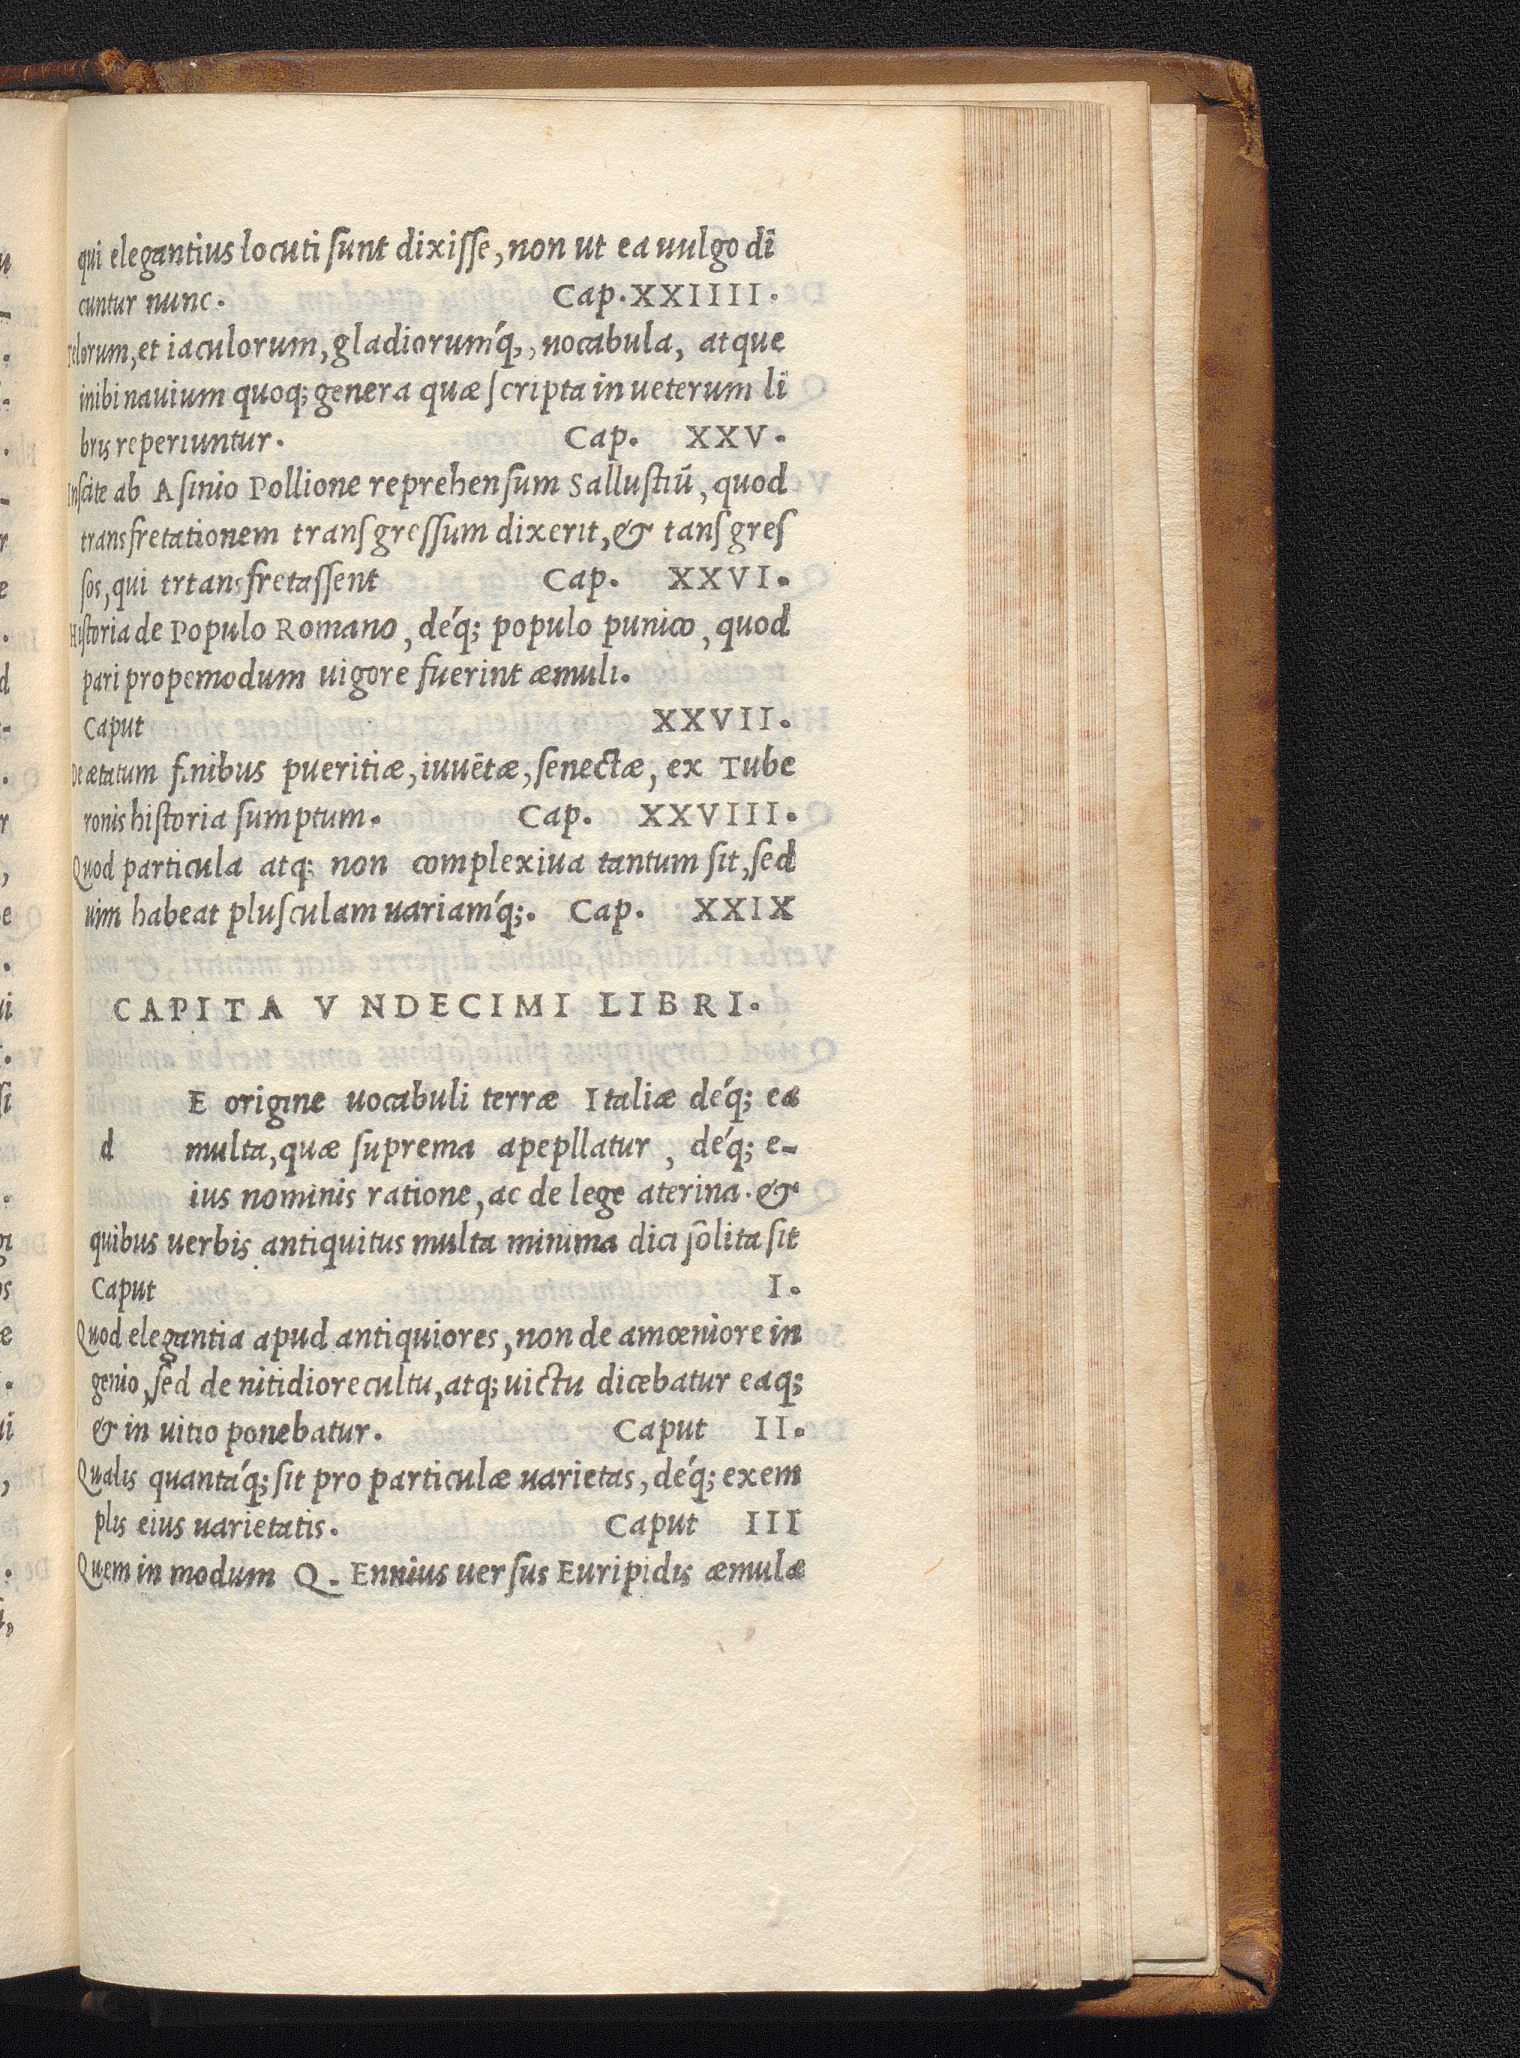 qui elegantius locuti sunt dixisse, non ut ea uulgo di
cuntur nunc. Cap. XXIIII.
Telorum, et iaculorum, gladiorumq́,, uocabula, atque
inibi nauium quoq; genera quæ scripta in ueterum li
bris reperiuntur. Cap. XXV.
Inscite ab Asinio Pollione reprehensum Sallustiū, quod
transfretationem transgressum dixerit, & tansgres
sos, qui trtansfretassent Cap. XXVI.
Historia de Populo Romano, deq́; populo punico, quod
pari propemodum uigore fuerint æmuli.
Caput XXVII.
De ætatum finibus pueritiæ, iuuētæ, senectæ, ex Tube
ronis historia sumptum. Cap. XXVIII.
Quod particula atq; non complexiua tantum sit, sed
uim habeat plusculam uariamq́;. Cap. XXIX
CAPITA V NDECIMI LIBRI.
E origine uocabuli terræ Italiæ deq́; ea
d multa, quæ suprema apepllatur, deq́; e-
ius nominis ratione, ac de lege aterina. &
quibus uerbis antiquitus multa minima dici solita sit
Caput I.
Quod elegantia apud antiquiores, non de amœniore in
genio, sed de nitidiore cultu, atq; uictu dicebatur eaq;
& in uitio ponebatur. Caput II.
Qualis quantaq́; sit pro particulæ uarietas, deq́; exem
plis eius uarietatis. Caput III
Quem in modum Q. Ennius uersus Euripidis æmulæ